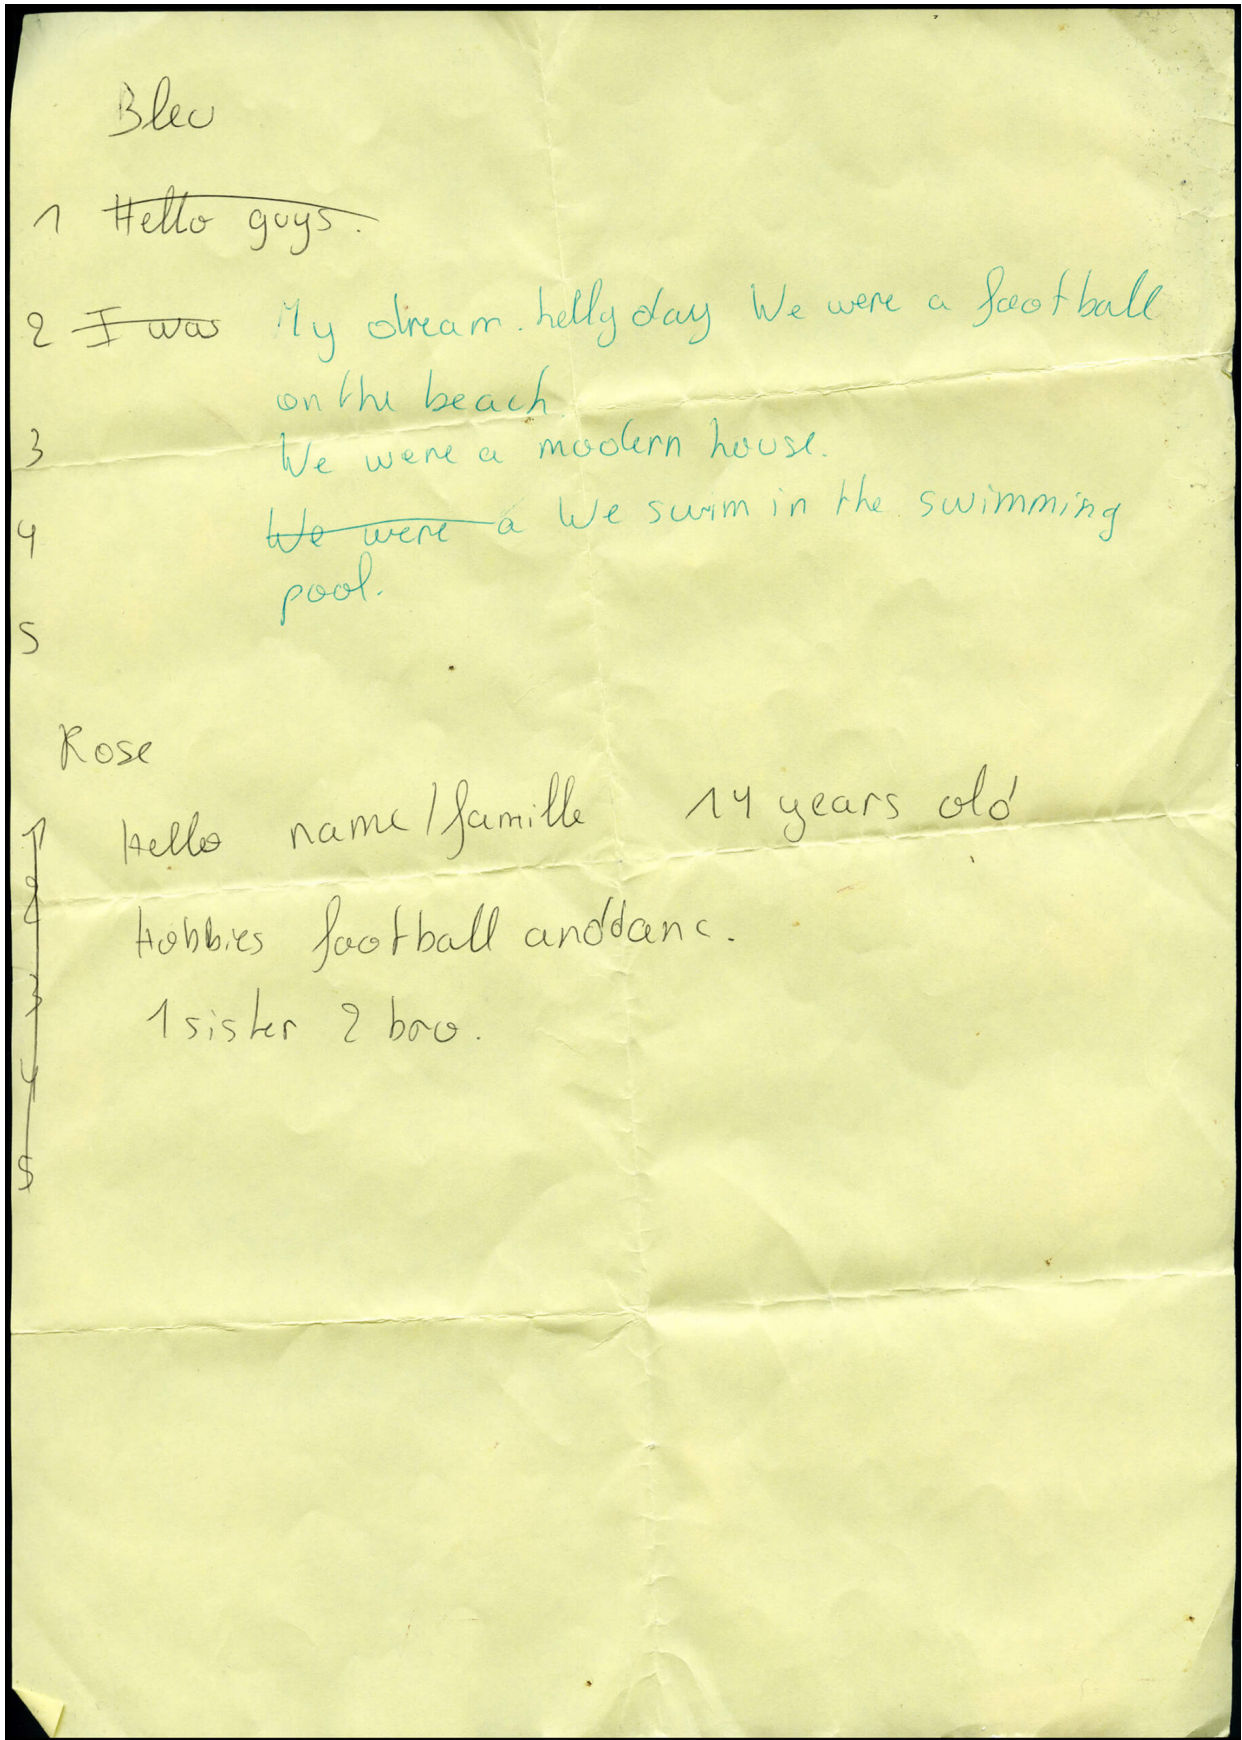 Bleu
1 Hello guys.
2 I was My dream. hellyday We were a football
on the beach
3 We were a modern house.
4 We were a We swim in the swimming
pool.
5
Rose
1 Hello name/famille 14 years old
2
Hobbies football and danc.
3 1 sister 2 bro.
4
5